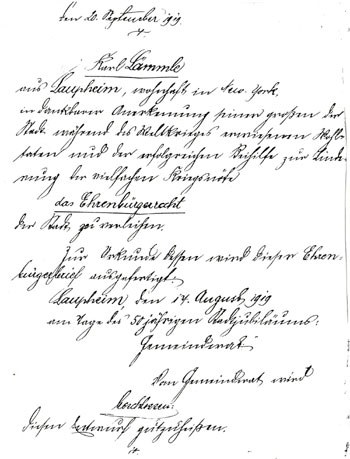 Den 20. September 1919
Karl Lämmle
aus Laupheim, wohnhaft in New York,
in dankbarer Anerkennung seiner großen der
Stadt während des Weltkrieges erwiesenen Wohl-
taten und der erfolgreichen Beihilfe zur Linde-
rung der vielfachen Kriegsnöte
das Ehrenbürgerrecht
der Stadt zu verleihen.
Zur Urkunde dessen wird dieser Ehren-
bürgerbrief ausgefertigt.
Laupheim, den 14. August 1919
am Tage des 50 jährigen Stadtjubiläums.
Gemeinderat
Vom Gemeinderat wird
beschlossen:
diesen Entwurf gutzuheißen.